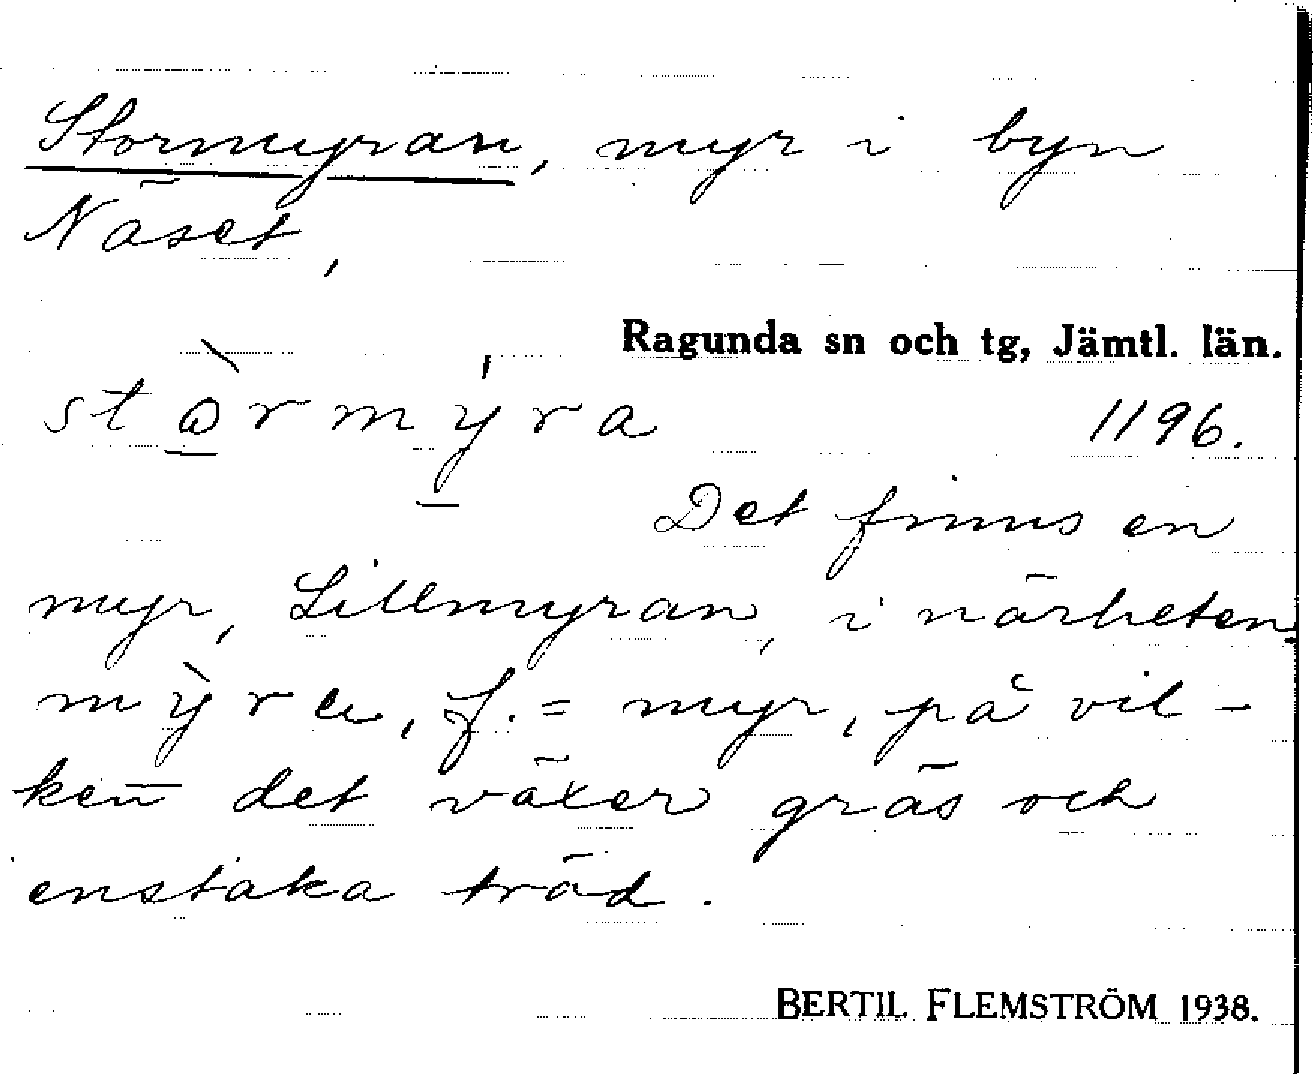 Stormyran, myr i byn
Näset,
Ragunda sn och tg, Jämtl. län.
stòrmýra 1196.
Det finns en
myr, Lillmyran, i närheten.
mỳra, f. = myr, på vil-
ken det växer gräs och
enstaka träd.
BERTIL FLEMSTRÖM 1938.